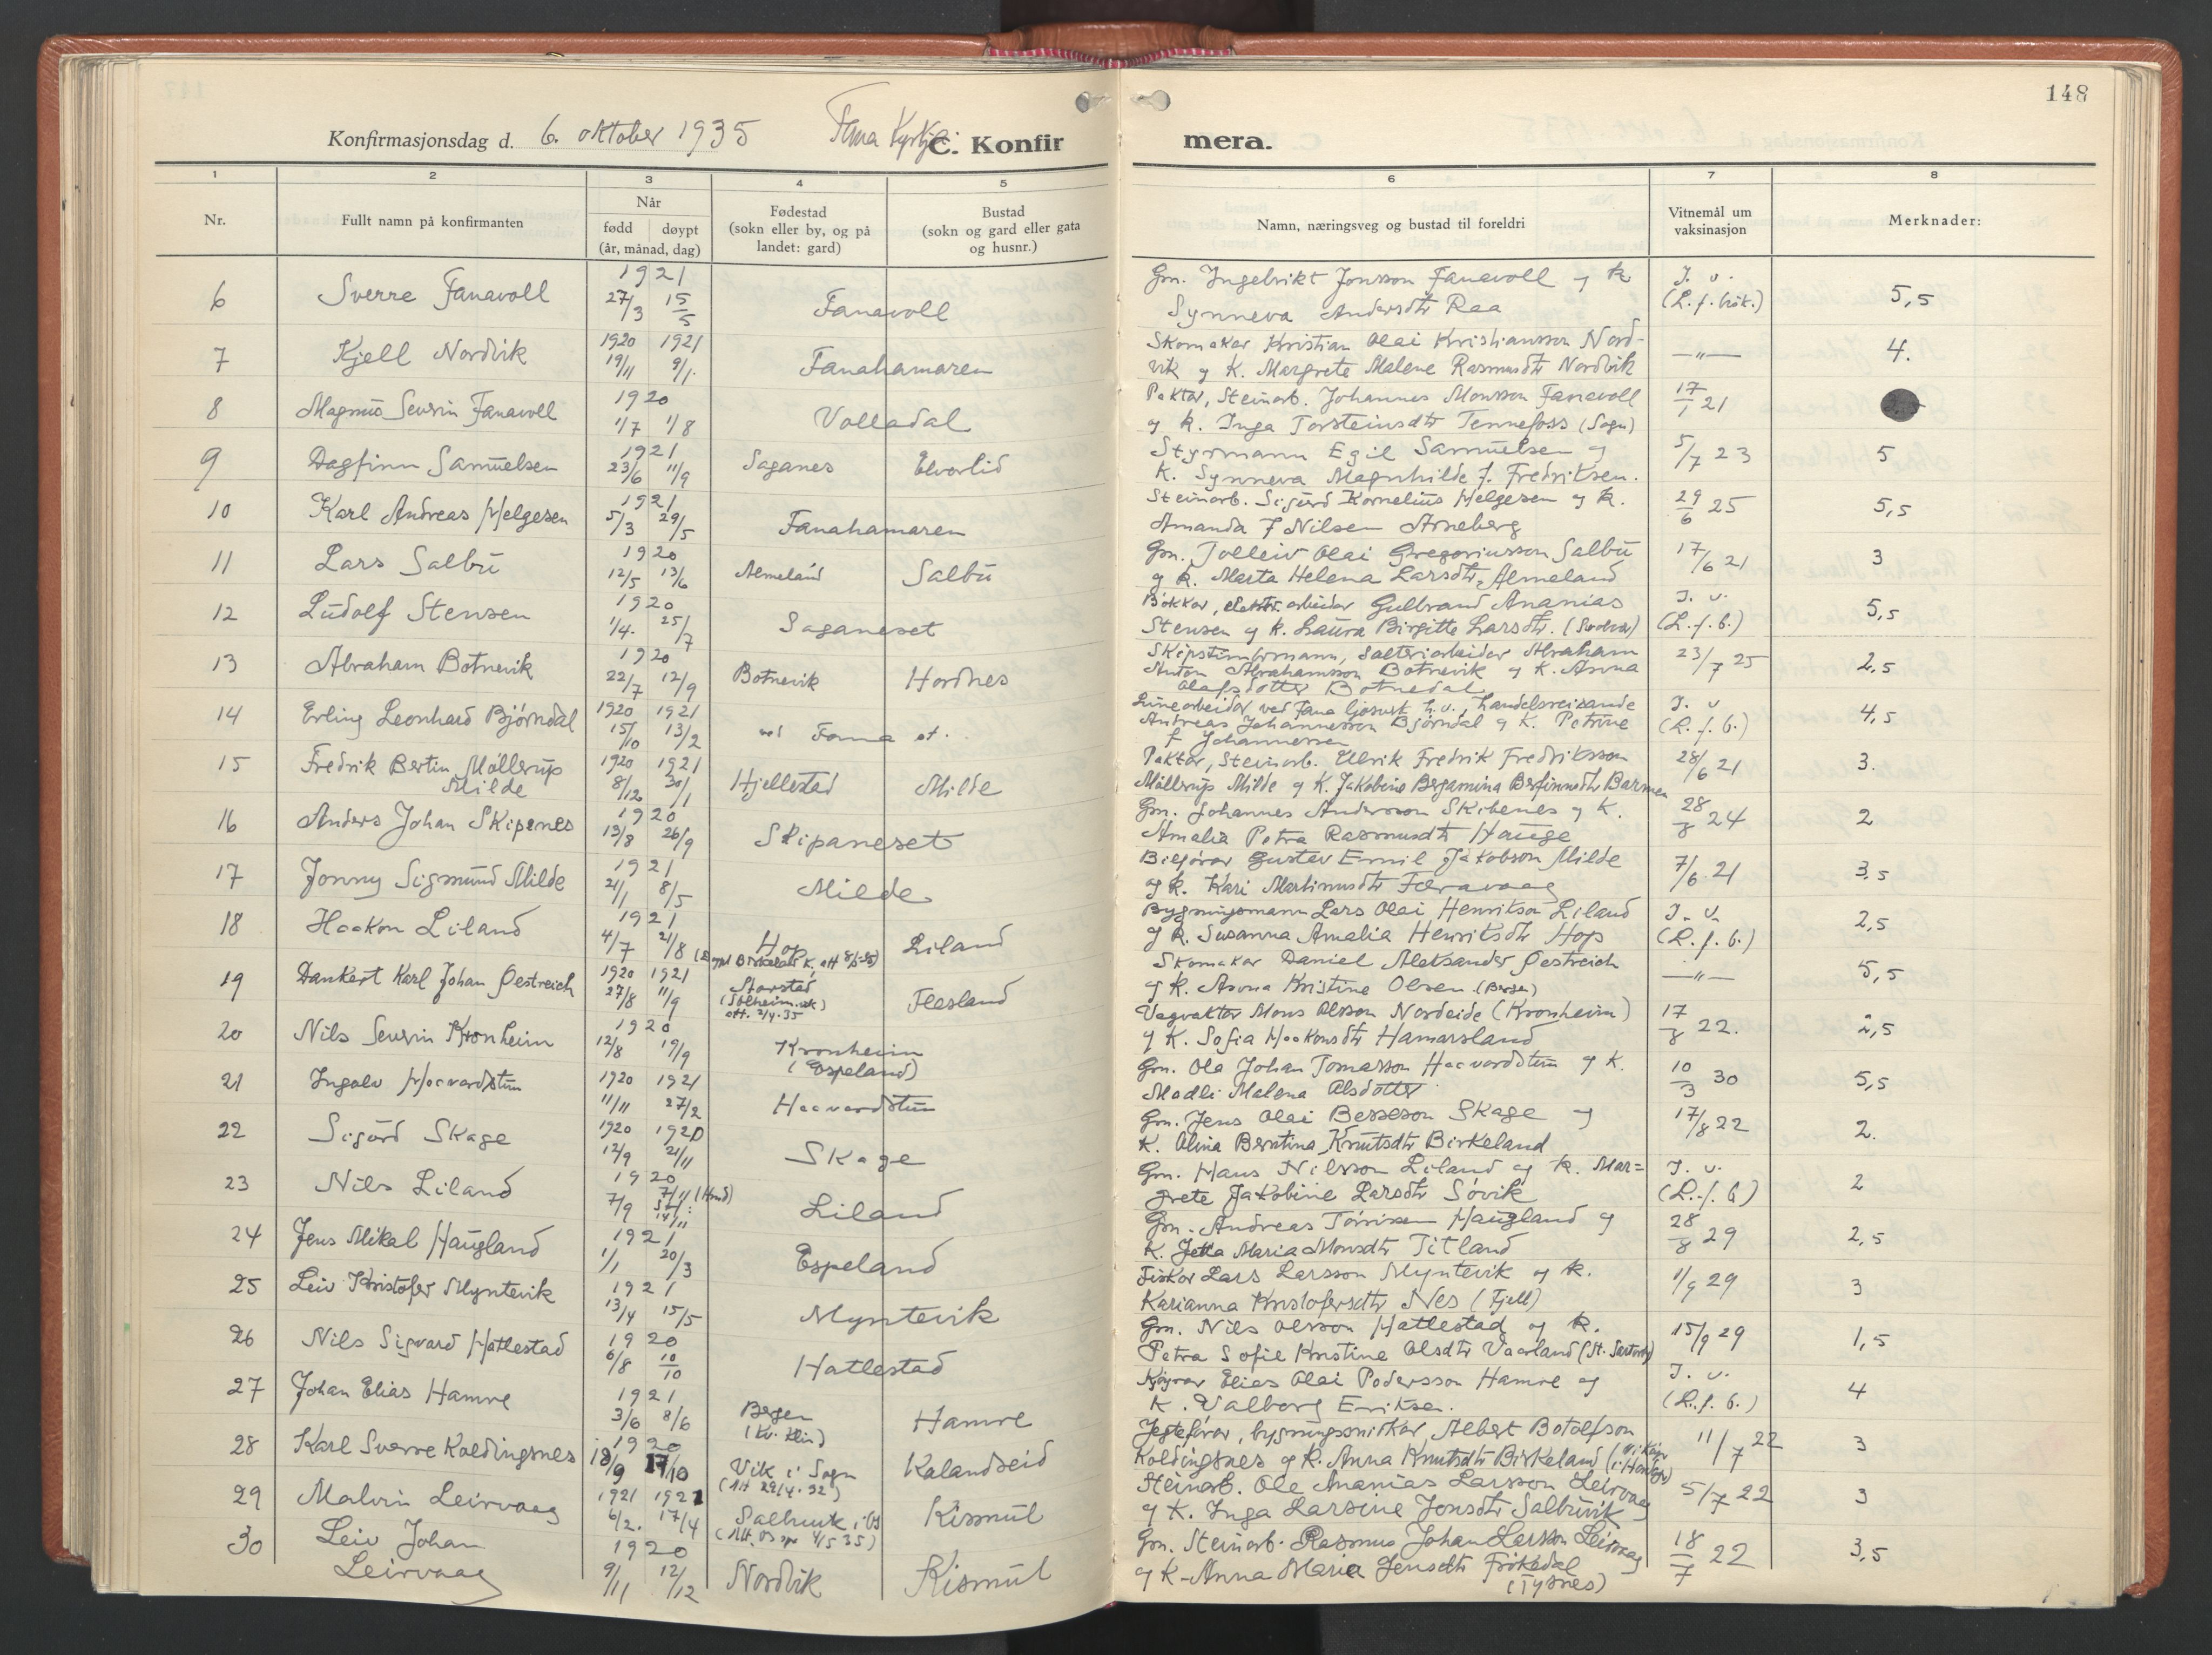 148
Konfirmasjonsdag d. 6. oktober 1935 Fana Kyrkje C. Konfirmera.
1 2 3 4 5 6 7 8
Nr. Fullt namn på konfirmanten Når fødd døypt (år, månad, dag) Fødestad (sokn eller by, og på landet: gard) Bustad (sokn og gard eller gata og husnr.) Namn, næringsveg og bustad til foreldri Vitnemål um vaksinasjon Merknader:
6 Sverre Fanavoll 1921 27/3 15/5 Fanavoll Gm. Ingebrikt Jonsson Fanavoll og k. J. v.
Synneva Andersdtr Raa (L. f. bók.) 5,5
7 Kjell Nordvik 1920 1921 19/11 9/1. Fanahamaren Skomakar Kristian Olai Kristiansson Nord-
vik og K. Margrete Malene Rasmusdtr Nordvik —"— 4.
8 Magnus Severin Fanavoll 1920 1/7 1/8 Volladal Paktar, Steinarb. Johannes Monsson Fanavoll 17/1 21
og k. Inga Torsteinsdtr Tennefoss (Sogn)
9 Dagfinn Samuelsen 1921 23/6 11/9 Saganes Elvarlid Styrmann Egil Samuelsen og 5/7 23 5
K. Synneva Magnhilde f. Fredriksen.
10 Karl Andreas Helgesen 1921 5/3 29/5 Fanahamaren Steinarb. Sigurd Kornelius Helgesen og k. 29/6 25 5,5
Amanda f Nilsen Arneberg
11 Lars Salbu 1920 12/5 13/6 Almeland Salbu Gm. Tolleiv Olai Gregoriusson Salbu 17/6 21 3
og k. Marta Helena Larsdtr Almeland
12 Ludolf Stensen 1920 1/4. 25/7 Saganeset Bøkkar, elektr. arbeidar Gulbrand Ananias J. v.
Stensen og k. Laura Birgitte Larsdtr. (L. f. b.) 5,5
13 Abraham Botnevik 1920 22/7 12/9 Botnevik Hordnes Skipstimbrmann, salteriarbeidar Abraham 23/7 25 2,5
Anton Abrahamsson Botnevik og K. Anna
Olafsdotter Botnedal
14 Erling Leonhard Bjørndal 1920 1921 15/10 13/2 ved Fana st. Linearbeidar ved Fana ljosverk h.v., handelsreisande J. v
Andreas Johannesson Bjørndal og K. Petrine (L. f. b.) 4,5
f Johannessen
15 Fredrik Bertin Møllerup Milde 1920 1921 8/12 30/1 Hjellestad Milde Paktar, Steinarb. Ulrik Fredrik Fredriksson 28/6 21 3.
Møllerup Milde og K. Jakobine Bergamina Berfinnsdtr Barmen
16 Anders Johan Skipenes 1920 13/8 26/9 Skipaneset Gm. Johannes Andersson Skibenes og K. 28/8 24 2
Amalia Petra Rasmusdtr Hauge
17 Jonny Sigmund Milde 1921 21/1 8/5 Milde Bilførar Gustav Emil Jakobson Milde 7/6 21 3,5
og k. Kari Martinusdtr Færavaag
18 Haakon Liland 1921 4/7 21/8 Hop Liland Bygningsmann Lars Olai Henrikson Liland J. v.
og k. Susanna Amalia Henriksdtr Hop (L. f. b.) 2,5
19 Dankert Karl Johan Østreich 1920 1921 27/8 11/9 Storstad (Solheim sk) att. 2/4.35 Flesland Skomakar Daniel Aleksander Østreich —"— 5,5
og k. Anna Kristine Olsen (Bergen)
20 Nils Severin Kronheim 1920 12/8 19/9 Kronheim (Espeland) Vegvaktar Mons Olsson Nordeide (Kronheim) 17/8 22. 2,5
og K. Sofia Haakonsdtr Hamarsland
21 Ingolv Haavardstun 1920 1921 11/11 27/2 Haavardstun Gm. Ola Johan Tomasson Haavardstun og K. 10/3 30 5,5
Madli Malena Olsdotter
22 Sigurd Skage 1920 1920 12/9 21/11 Skage Gm. Jens Olai Besseson Skage og 17/8 22 2.
K. Olina Berntina Knutsdtr Birkeland
23 Nils Liland 1920 7/9 7/11 14/11 Liland Gm. Hans Nilsson Liland og k. Mar= J. v.
grete Jakobine Larsdtr Søvik (L. f. b) 2
24 Jens Mikal Haugland 1921 1/1 20/3 Espeland Gm. Andreas Haugland og 28/8 29 2,5
K. Jetta Maria Monsdtr Titland
25 Leiv Kristofer Myntevik 1921 13/4 15/5 Myntevik Fiskar Lars Larsson Myntevik og k. 1/9 29 3
Karianna Kristofersdtr Nes (Fjell)
26 Nils Sigvard Hatlestad 1920 6/8 10/10 Hatlestad Gm. Nils Olsson Hatlestad og k. 15/9 29 1,5
Petra Sofie Kristine Olsdtr Vaarland
27 Johan Elias Hamre 1921 3/6 8/6 Bergen (Kv. klin) Hamre Køyrar Elias Olai Pedersson Hamre og J. v.
K. Valborg Eriksen. (L. f. b.) 4
28 Karl Sverre Koldingsnes 1920 18/9 17/10 Vik i Sogn (Att 29/4.32) Kalandseid Jegtførar, bygningssnikkar, Albert Botolfson 11/7 22 3
Koldingsnes og k. Anna Knutsdtr Birkeland
29 Malvin Leirvaag 1921 1921 6/2. 17/4 Salhuvik i Os (Att. Os spr 4/5 35) Kismul Steinarb. Ole Ananias Larsson Leirvaag 5/7 22 3
og K. Inga Larsine Jonsdtr Salbuvik
30 Leiv Johan Leirvaag 1920 9/11 12/12 Nordvik Kismul Gm. Steinarb. Rasmus Johan Larsson Leirvaag 18/7 22 3,5
og k. Anna Maria Jensdtr (Tysnes)